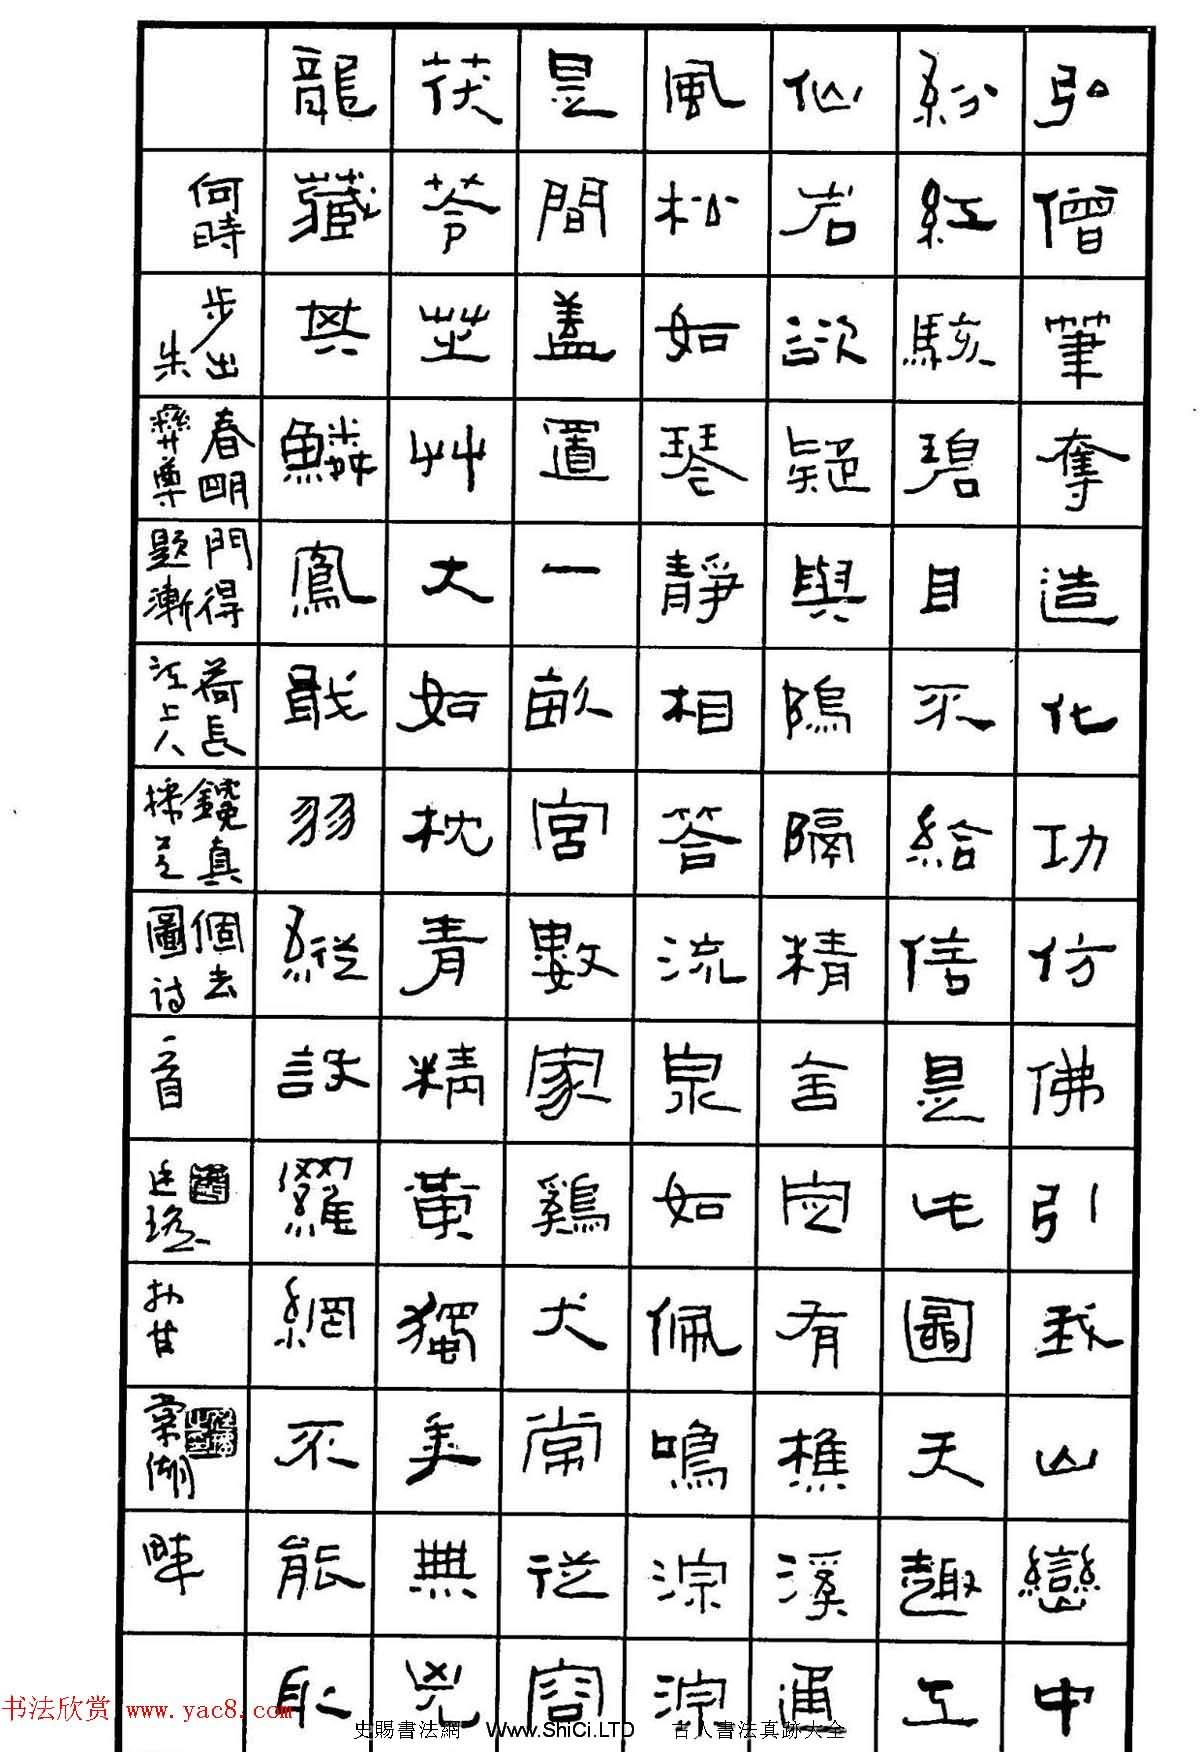 弘僧筆奪造化功仿佛引我山巒中
紛紅駭碧目不給信是化圖天趣工
仙岩欲疑與隖隔精舍定有樵溪通
風松如琴靜相答流泉如佩鳴淙淙
是間盖置一畝宮數家鷄犬常從容
茯苓芝草大如枕青精黄獨年無兇
龍藏其鱗鳳戢羽縱設羅網不能取
何時步出春明門得荷長鑱真個去
朱彝尊題漸江上人採芝圖詩一首
延瑤抄甘棠湖畔
书法欣赏 www.yac8.com
史賜書法網 Www.ShiCi.LTD 古人書法真跡大全